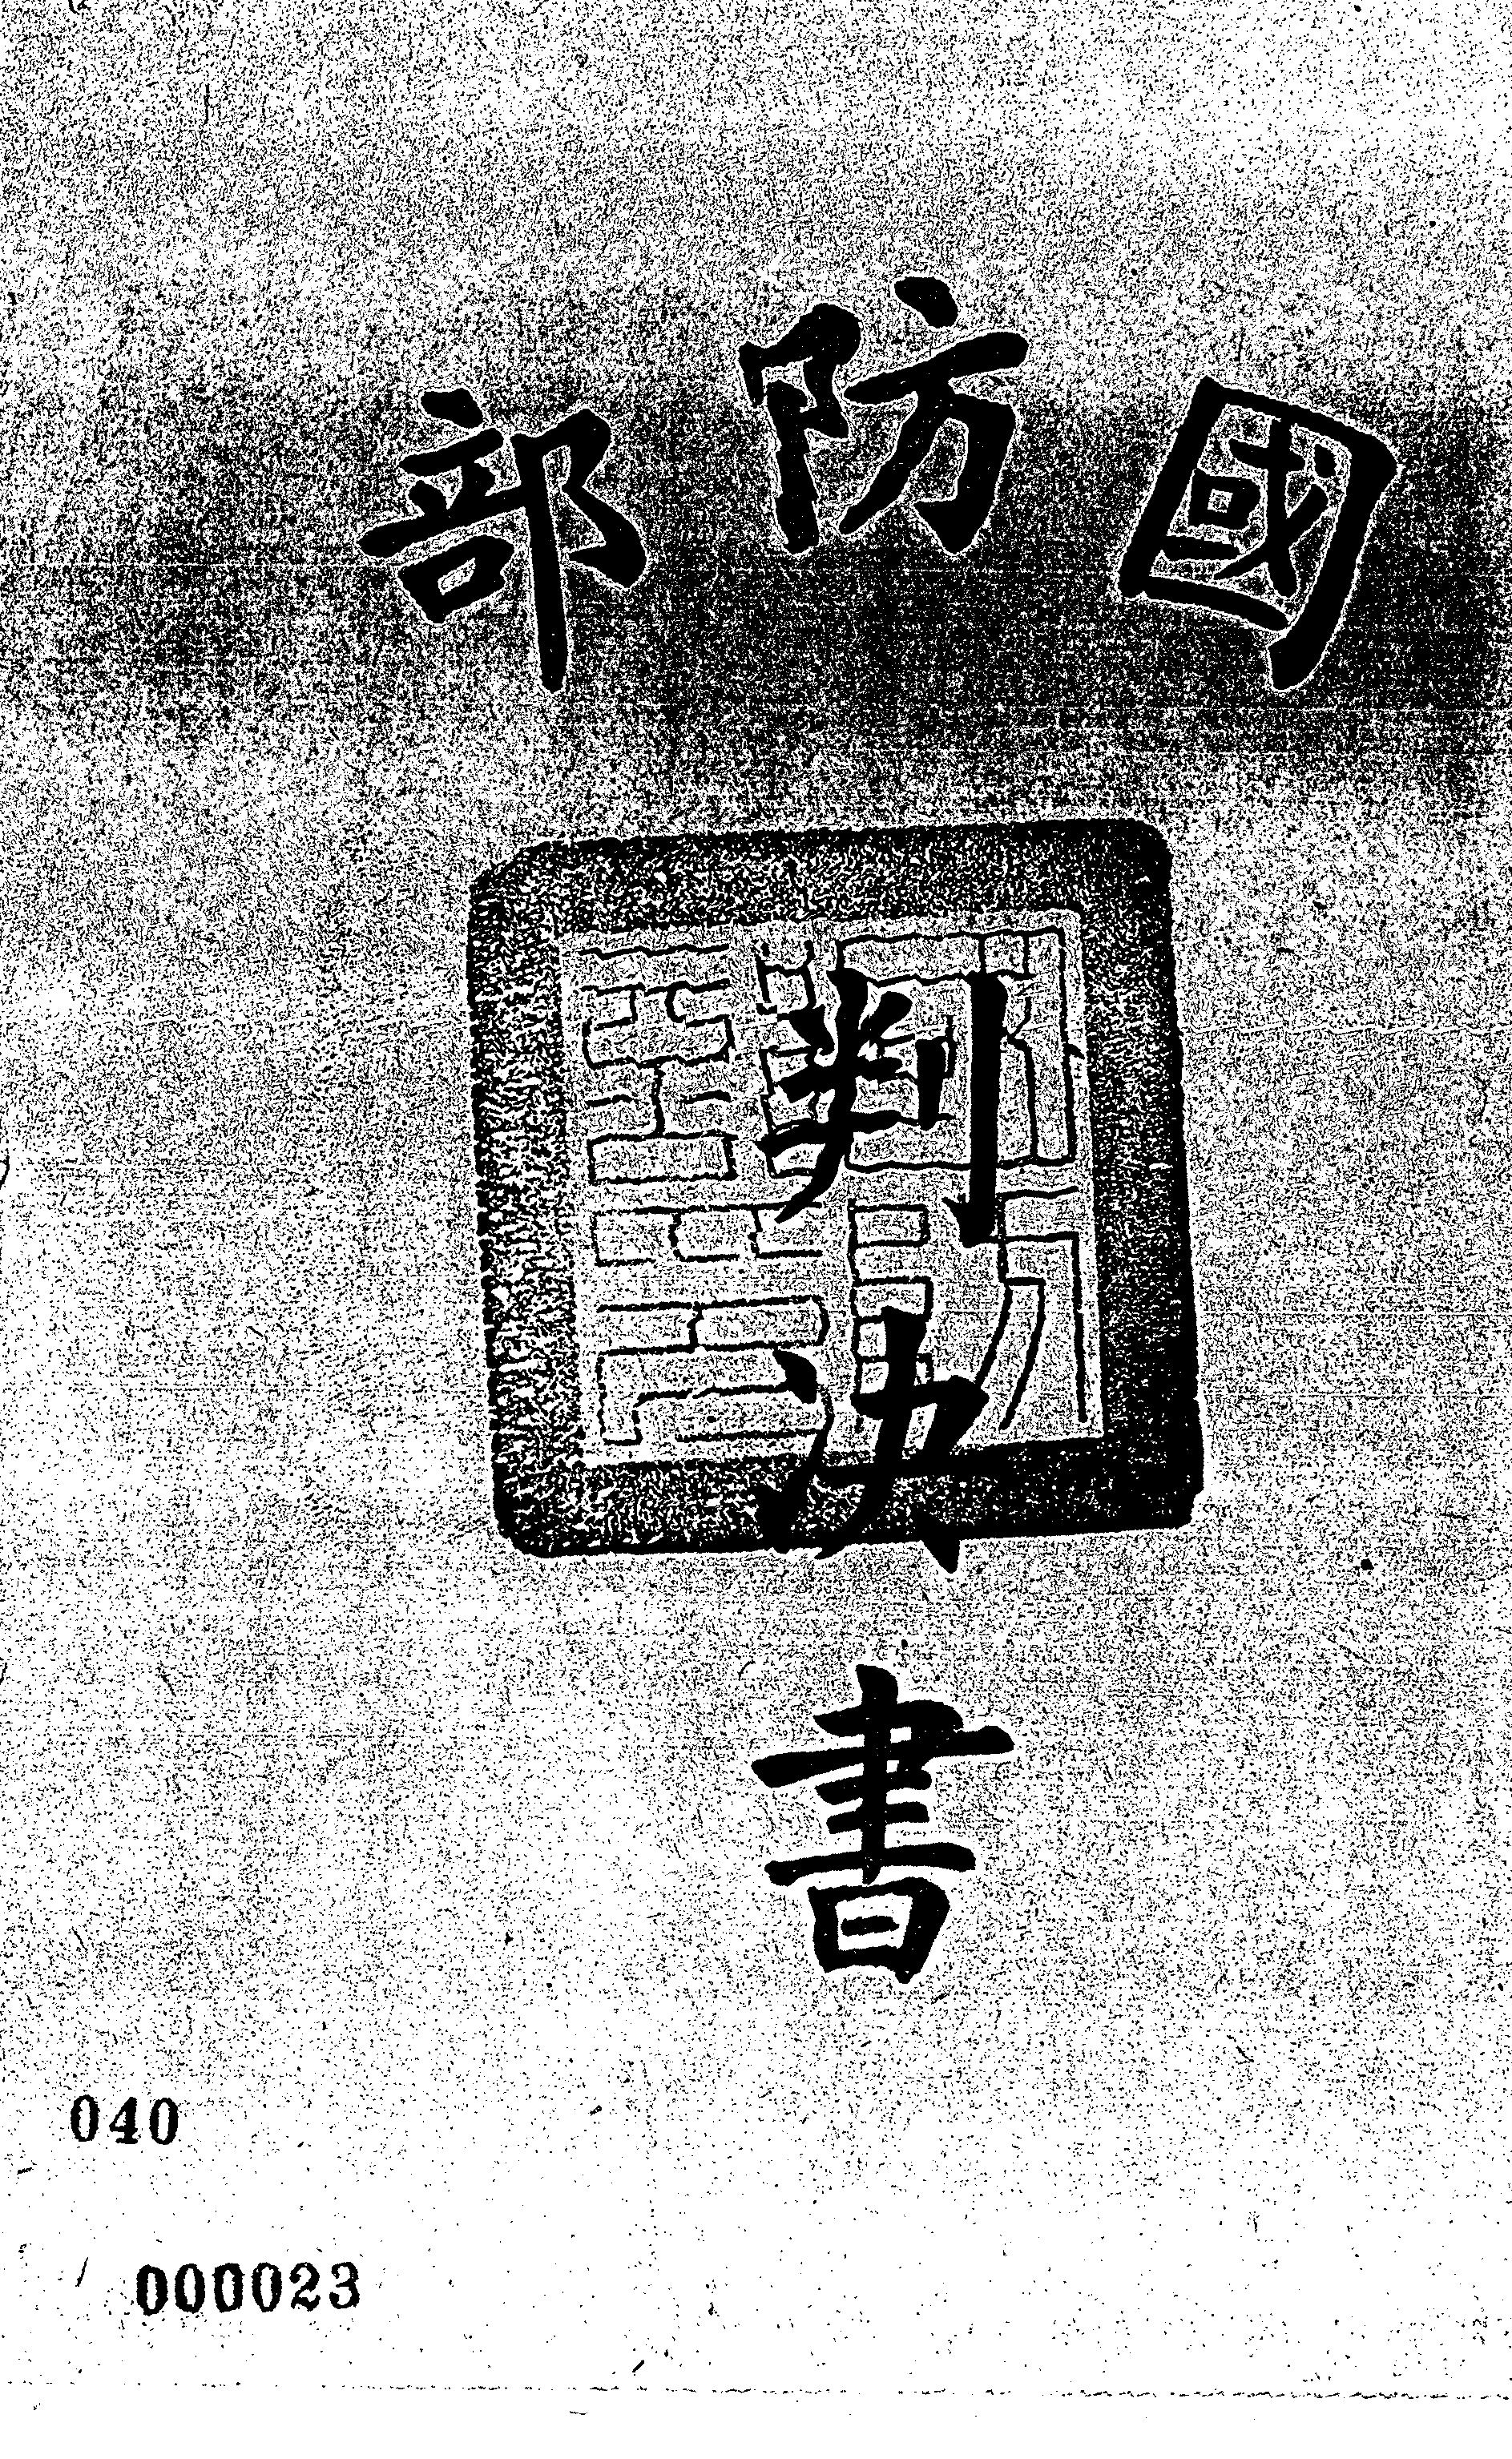 國防部
判決書
040
000023